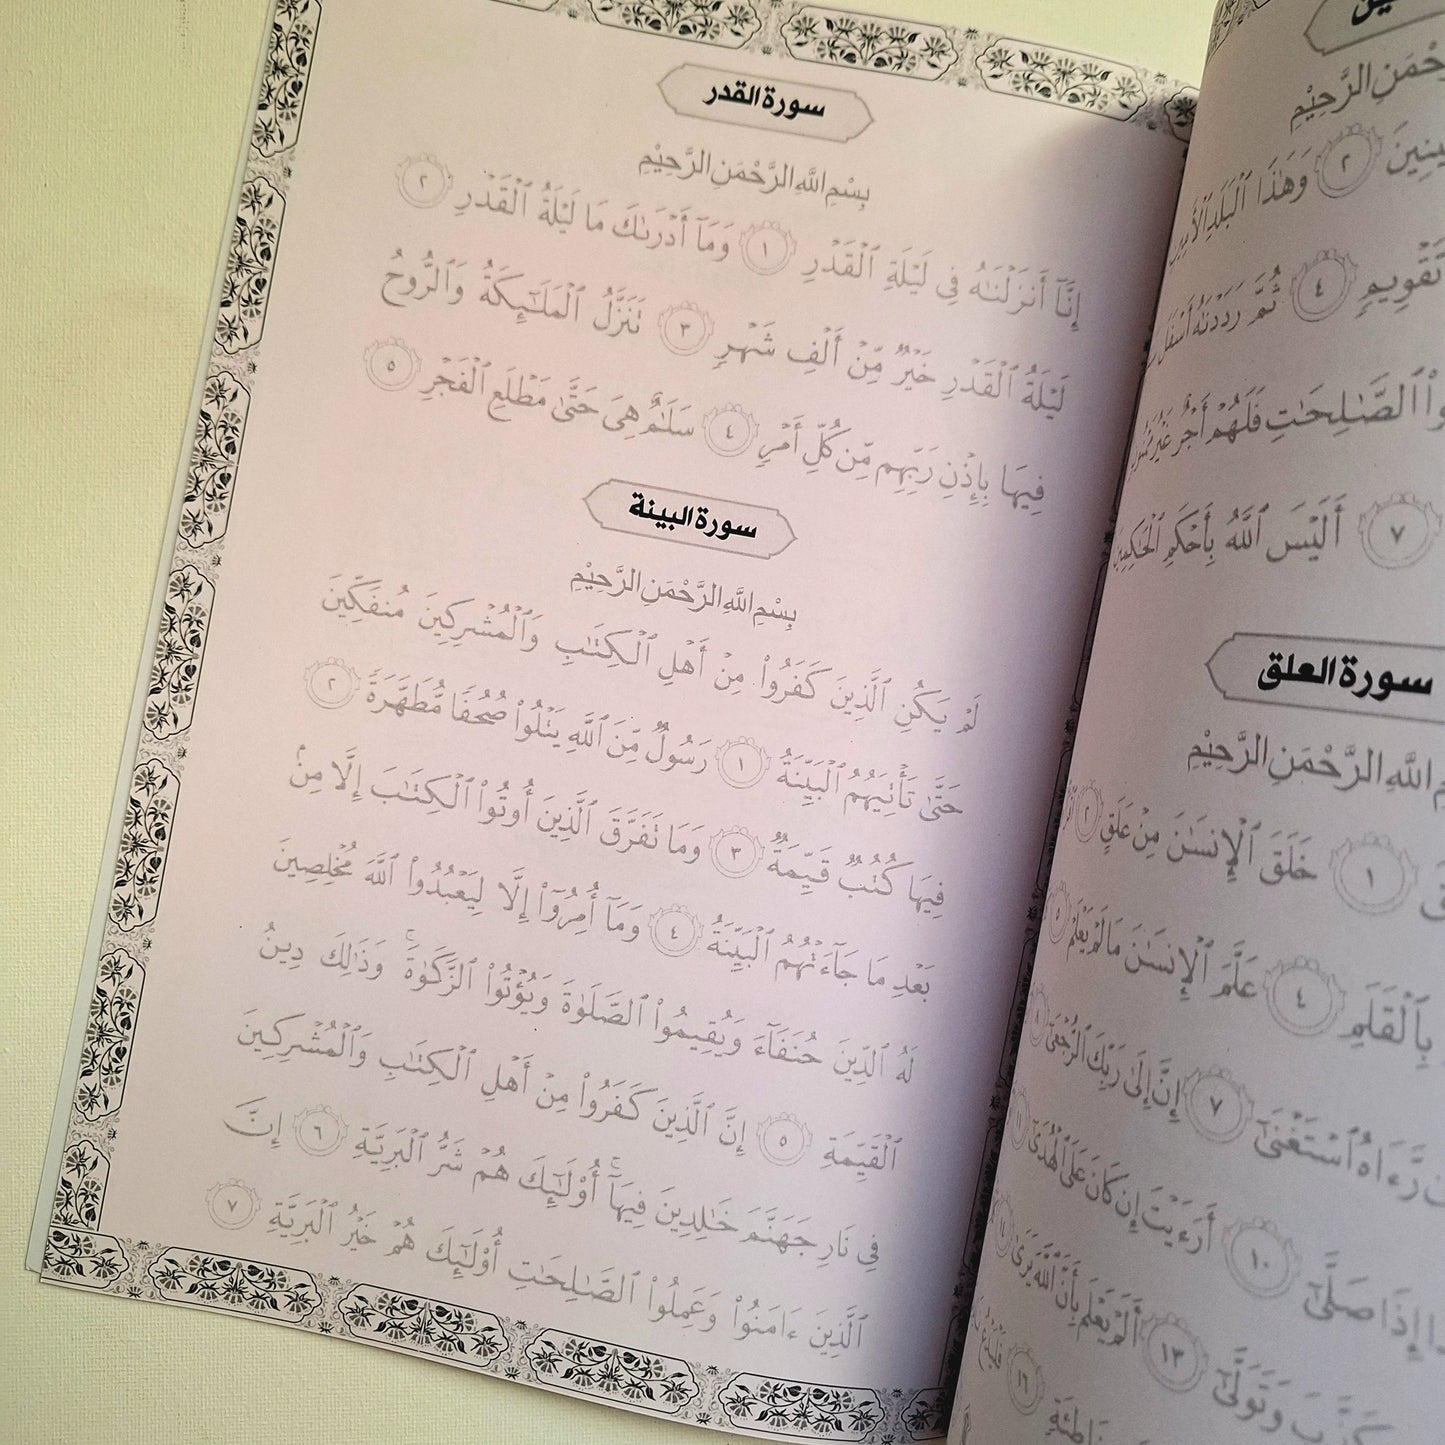 سورة القدر
بِسْمِ اللَّهِ الرَّحْمَنِ الرَّحِيْمِ
إِنَّآ أَنزَلْنَٰهُ فِى لَيْلَةِ ٱلْقَدْرِ ١ وَمَآ أَدْرَىٰكَ مَا لَيْلَةُ ٱلْقَدْرِ ٢
لَيْلَةُ ٱلْقَدْرِ خَيْرٌ مِّنْ أَلْفِ شَهْرٍ ٣ تَنَزَّلُ ٱلْمَلَٰٓئِكَةُ وَٱلرُّوحُ
فِيهَا بِإِذْنِ رَبِّهِم مِّن كُلِّ أَمْرٍ ٤ سَلَٰمٌ هِىَ حَتَّىٰ مَطْلَعِ ٱلْفَجْرِ ٥
سورة البينة
بِسْمِ اللَّهِ الرَّحْمَنِ الرَّحِيْمِ
لَمْ يَكُنِ ٱلَّذِينَ كَفَرُوا۟ مِنْ أَهْلِ ٱلْكِتَٰبِ وَٱلْمُشْرِكِينَ مُنفَكِّينَ
حَتَّىٰ تَأْتِيَهُمُ ٱلْبَيِّنَةُ ١ رَسُولٌ مِّنَ ٱللَّهِ يَتْلُوا۟ صُحُفًا مُّطَهَّرَةً ٢
فِيهَا كُتُبٌ قَيِّمَةٌ ٣ وَمَا تَفَرَّقَ ٱلَّذِينَ أُوتُوا۟ ٱلْكِتَٰبَ إِلَّا مِنۢ
بَعْدِ مَا جَآءَتْهُمُ ٱلْبَيِّنَةُ ٤ وَمَآ أُمِرُوٓا۟ إِلَّا لِيَعْبُدُوا۟ ٱللَّهَ مُخْلِصِينَ
لَهُ ٱلدِّينَ حُنَفَآءَ وَيُقِيمُوا۟ ٱلصَّلَوٰةَ وَيُؤْتُوا۟ ٱلزَّكَوٰةَ ۚ وَذَٰلِكَ دِينُ
ٱلْقَيِّمَةِ ٥ إِنَّ ٱلَّذِينَ كَفَرُوا۟ مِنْ أَهْلِ ٱلْكِتَٰبِ وَٱلْمُشْرِكِينَ
فِى نَارِ جَهَنَّمَ خَٰلِدِينَ فِيهَآ ۚ أُو۟لَٰٓئِكَ هُمْ شَرُّ ٱلْبَرِيَّةِ ٦ إِنَّ
ٱلَّذِينَ ءَامَنُوا۟ وَعَمِلُوا۟ ٱلصَّٰلِحَٰتِ أُو۟لَٰٓئِكَ هُمْ خَيْرُ ٱلْبَرِيَّةِ ٧
الرَّحِيْمِ
٢ وَهَٰذَا ٱلْبَلَدِ ٱلْأَمِينِ
تَقْوِيمٍ ٤ ثُمَّ رَدَدْنَٰهُ أَسْفَلَ
ٱلصَّٰلِحَٰتِ فَلَهُمْ أَجْرٌ غَيْرُ
٧ أَلَيْسَ ٱللَّهُ بِأَحْكَمِ ٱلْحَٰكِمِينَ
سورة العلق
اللَّهِ الرَّحْمَنِ الرَّحِيْمِ
١ خَلَقَ ٱلْإِنسَٰنَ مِنْ عَلَقٍ ٢
بِٱلْقَلَمِ ٤ عَلَّمَ ٱلْإِنسَٰنَ مَا لَمْ يَعْلَمْ ٥
رَّءَاهُ ٱسْتَغْنَىٰٓ ٧ إِنَّ إِلَىٰ رَبِّكَ ٱلرُّجْعَىٰٓ ٨
إِذَا صَلَّىٰٓ ١٠ أَرَءَيْتَ إِن كَانَ عَلَى ٱلْهُدَىٰٓ ١١
وَتَوَلَّىٰٓ ١٣ أَلَمْ يَعْلَم بِأَنَّ ٱللَّهَ يَرَىٰ
خَاطِئَةٍ ١٦